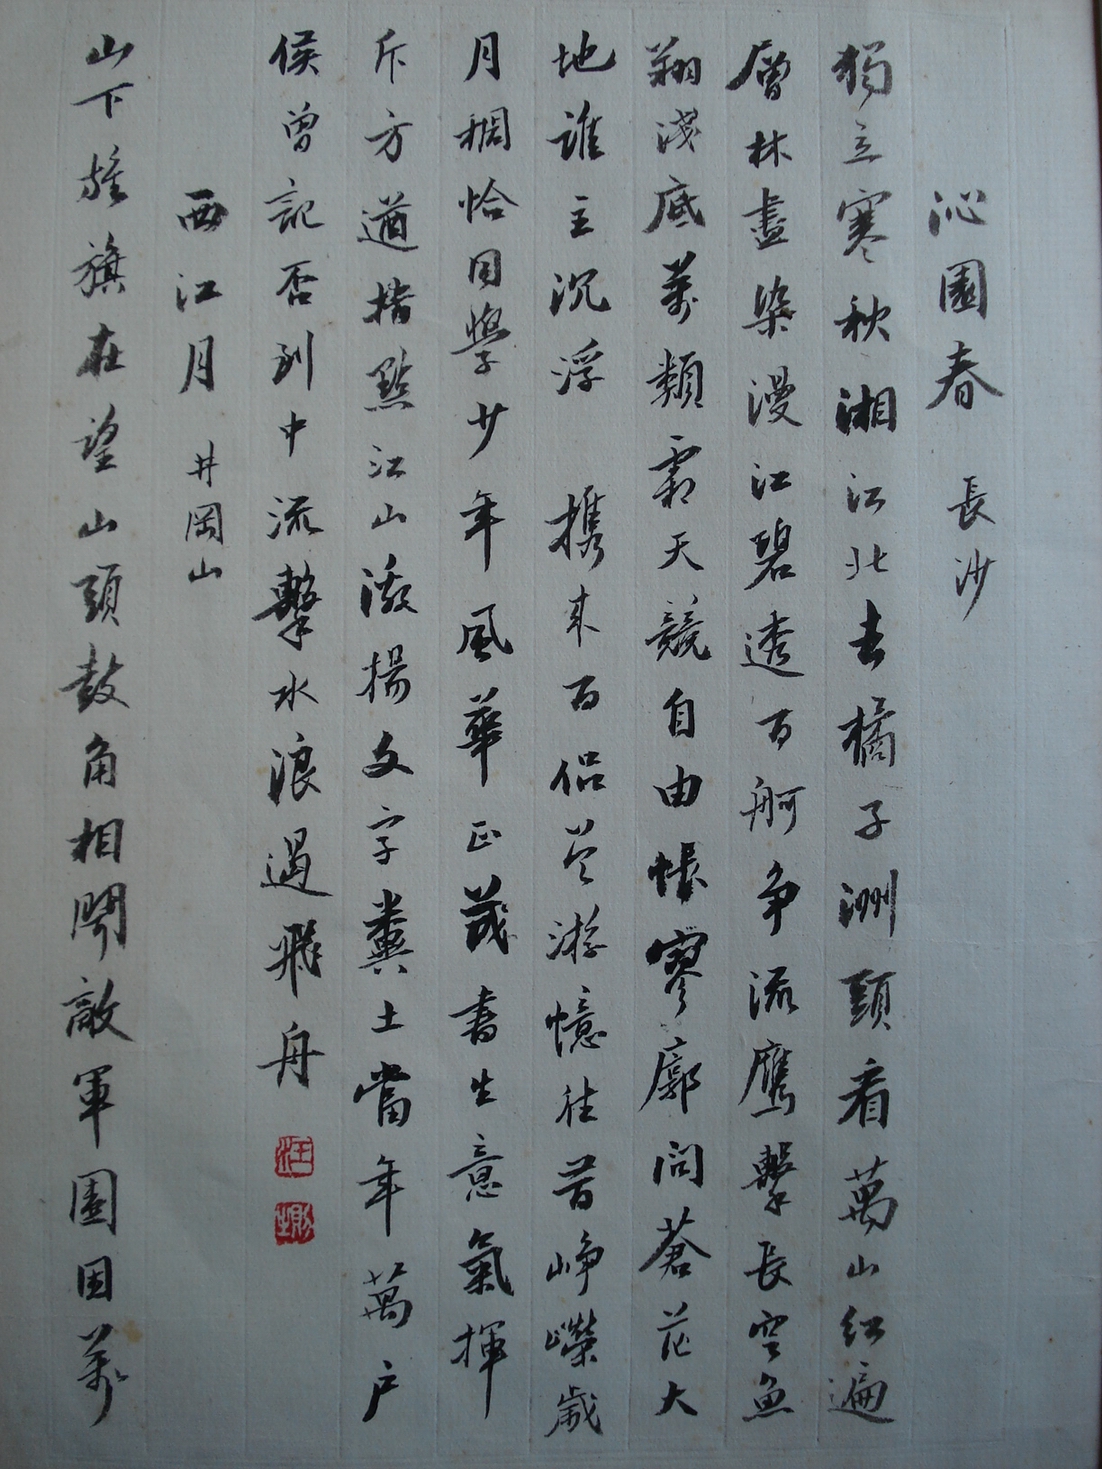 沁園春 長沙
獨立寒秋湘江北去橘子洲頭看萬山紅遍
層林盡染漫江碧透百舸争流鹰擊長空魚
翔淺底萬類霜天競自由悵寥廓問蒼茫大
地誰主沉浮 携来百侣曾游憶往昔崢嶸歲
月稠恰同學少年風華正茂書生意氣揮
斥方遒指點江山激揚文字糞土當年萬户
侯曾記否到中流擊水浪遏飛舟
西江月 井岡山
山下旌旗在望山頭鼓角相聞敵軍圍困萬